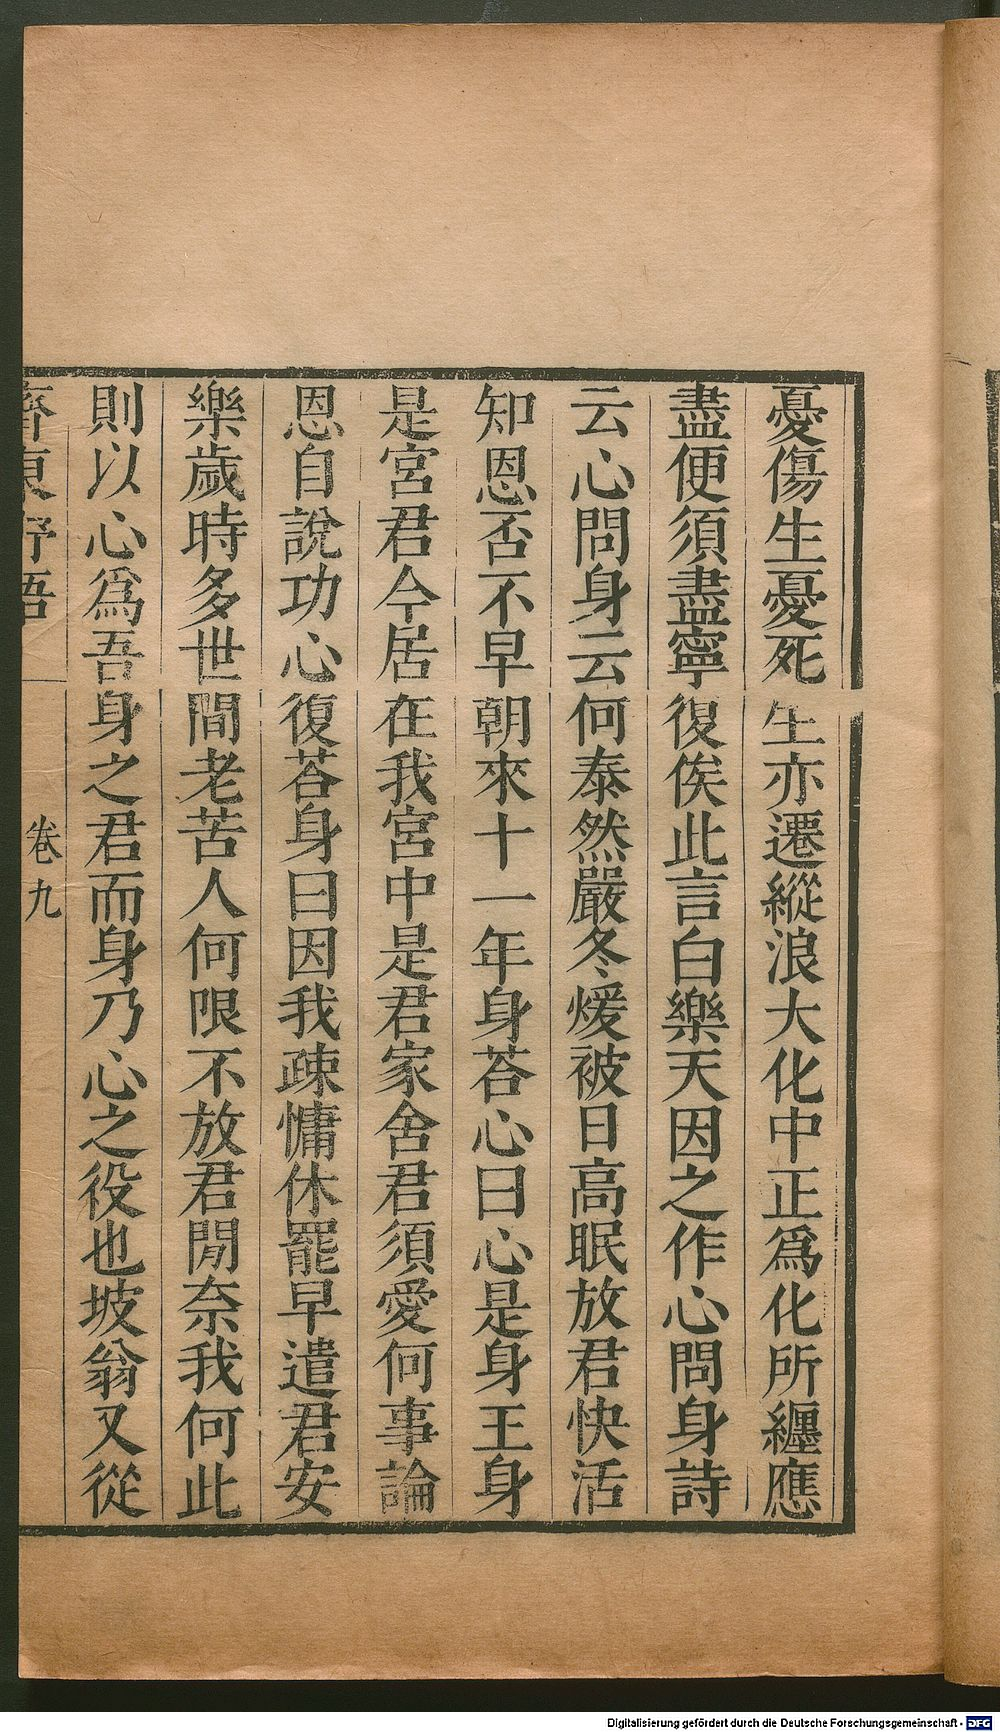 憂傷生憂死生亦遷縱浪大化中正爲化所纏應
盡便須盡寧復俟此言白樂天因之作心問身詩
云心問身云何泰然嚴冬煖被日高眠放君快活
知恩否不早朝來十一年身荅心曰心是身王身
是宮君今居在我宮中是君家舍君須愛何事論
恩自說功心復荅身曰因我疎慵休罷早遣君安
樂歲時多世間老苦人何限不放君閒奈我何此
則以心爲吾身之君而身乃心之役也坡翁又從
齊東野語 卷九
Digitalisierung gefördert durch die Deutsche Forschungsgemeinschaft - DFG